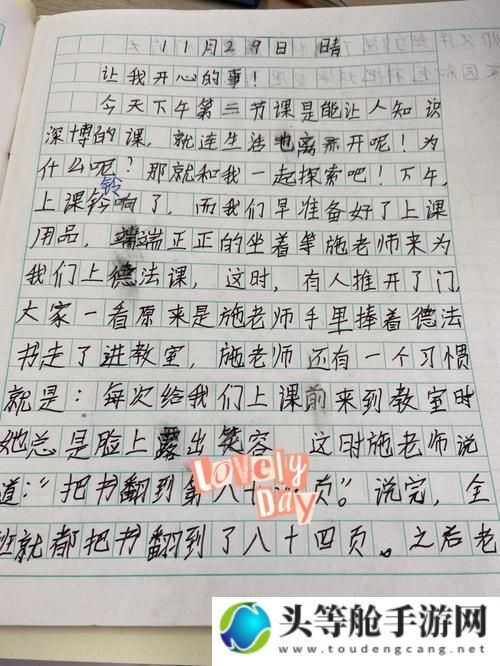 11月29日 晴
让我开心的事!
今天下午第三节课是能让人知识
深博的课,就连生活也离不开呢!为
什么呢?那就和我一起探索吧!下午,
铃
上课铃响了,而我们早准备好了上课
用品,端端正正的坐着等施老师来为
我们上德法课,这时,有人推开了门,
大家一看原来是施老师手里捧着德法
书走了进教室,施老师还有一个习惯
就是:每次给我们上课前来到教室时
她总是脸上露出笑容 这时施老师说
道:“把书翻到第八十 页”。说完,全
班就都把书翻到了八十四页。之后老
LOVELY
DAY
头等舱手游网
www.toudengcang.net